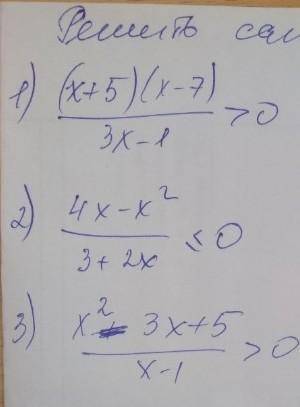 Решить сам
1) (x+5)(x-7) / 3x-1 >0
2) 4x-x² / 3+2x ≤0
3) x²- 3x+5 / x-1 >0